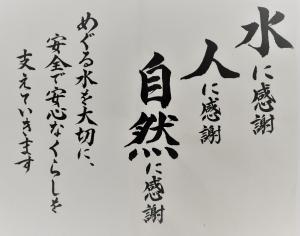 水に感謝
人に感謝
自然に感謝
めぐる水を大切に、
安全で安心なくらしを
支えていきます